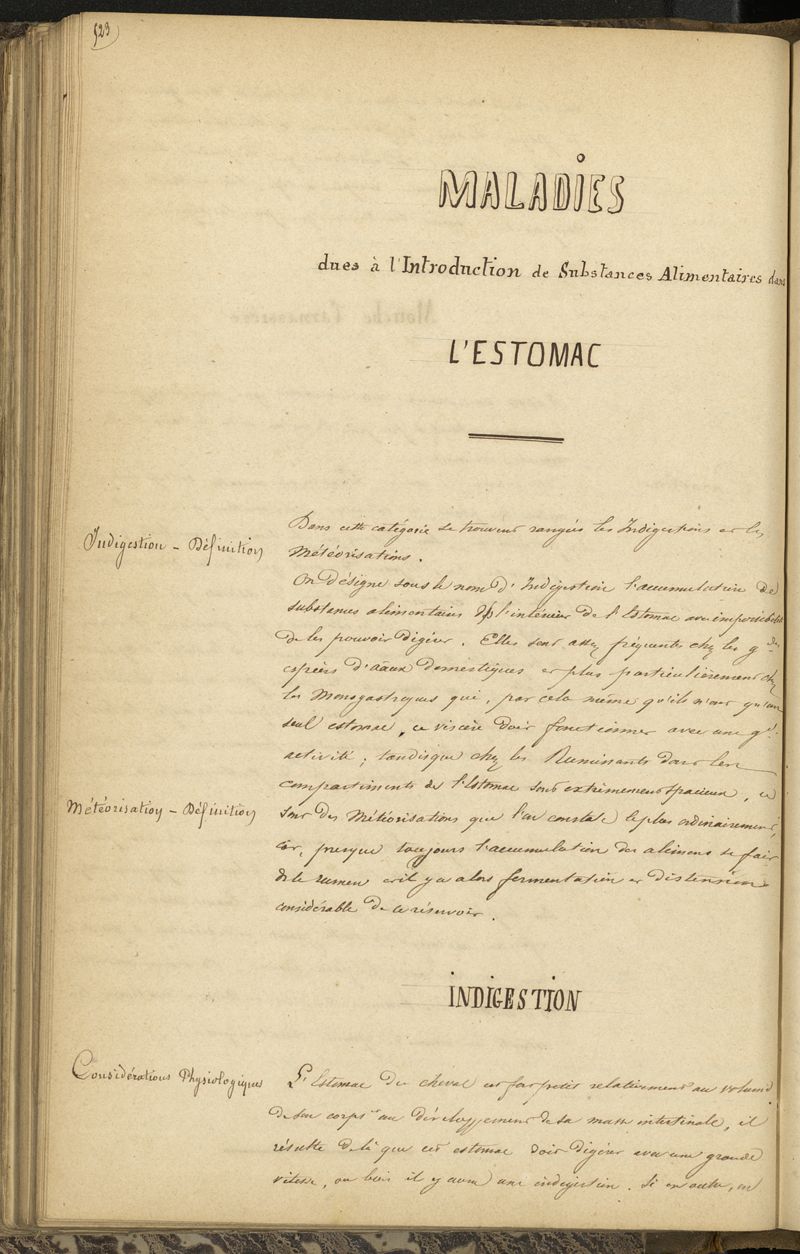 523
MALADIES
dues à l'Introduction de Substances Alimentaires dans
L'ESTOMAC
Indigestion - Définition
Dans cette catégorie se trouvent rangées les Indigestions et les
Météorisations.
On désigne sous le nom d'Indigestion l'accumulation de
substances alimentaires ds l'intérieur de l'Estomac avec impossibilité
de les pouvoir digérer. Elles sont assez fréquentes chez les gdes
espèces d'aâux domestiques et plus particulièrement chez
les Monogastriques qui, par cela même qu'ils n'ont qu'un
seul estomac, ce viscère doit fonctionner avec une gde
activité; tandisque chez les Ruminants dont les
compartiments de l'Estomac sont extrêmement spacieux, ce
Météorisation - Définition
sont des Météorisations que l'on constate le plus ordinairement,
car, presque toujours l'accumulation des aliments se fait
ds le rumen et il y a alors fermentation et distension
considérable de ce réservoir.
INDIGESTION
Considérations Physiologiques
L'Estomac du cheval est fort petit relativement au volume
de son corps et au développement de sa masse intestinale, il
résulte de là que cet estomac doit digérer avec une grande
vitesse, ou bien il y aura une indigestion. Si en outre, on